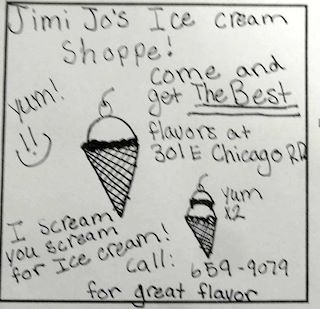 Jimi Jo's Ice cream
Shoppe!
come and
get The Best
flavors at
301 E Chicago RD
yum!
!!
yum
x2
I scream
you scream
for Ice cream!
call: 659-9079
for great flavor